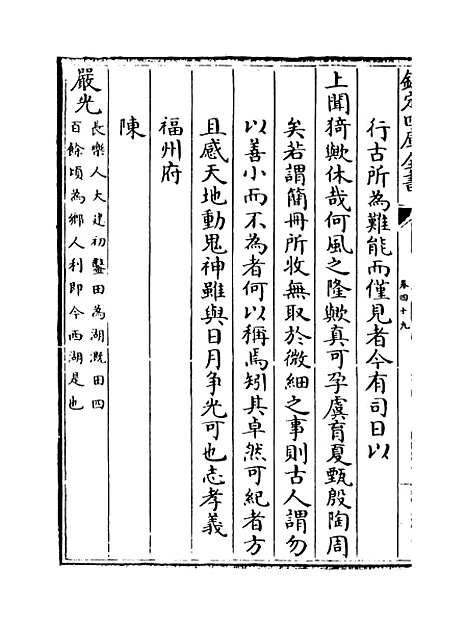 欽定四庫全書
卷四十九
行古所為難能而僅見者今有司日以
上聞猗歟休哉何風之隆歟真可孕虞育夏甄殷陶周
矣若謂簡冊所收無取於微細之事則古人謂勿
以善小而不為者何以稱焉矧其卓然可紀者方
且感天地動鬼神雖與日月争光可也志孝義
福州府
陳
嚴光
長樂人大建初鑿田為湖溉田四
百餘頃為鄉人利即今西湖是也